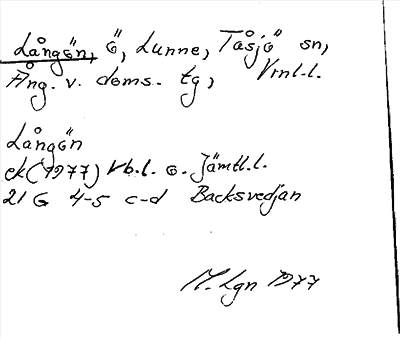 Långön, ö, Lunne, Tåsjö sn,
Ång. v. doms. tg, Vrnl.l.
Långön
ek(1977) Vb.l. o. Jämtl.l.
21 G 4-5 c-d Backsvedjan
M. Lgn 1977